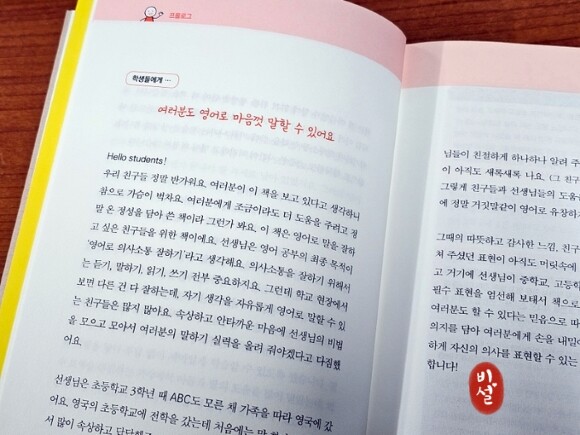 프롤로그
학생들에게 …
여러분도 영어로 마음껏 말할 수 있어요
Hello students!
우리 친구들 정말 반가워요. 여러분이 이 책을 보고 있다고 생각하니
참으로 가슴이 벅차요. 여러분에게 조금이라도 더 도움을 주려고 정
말 온 정성을 담아 쓴 책이라 그런가 봐요. 이 책은 영어로 말을 잘하
고 싶은 친구들을 위한 책이에요. 선생님은 영어 공부의 최종 목적이
'영어로 의사소통 잘하기'라고 생각해요. 의사소통을 잘하기 위해서
는 듣기, 말하기, 읽기, 쓰기 전부 중요하지요. 그런데 학교 현장에서
보면 다른 건 다 잘하는데, 자기 생각을 자유롭게 영어로 말할 수 있
는 친구들은 많지 않아요. 속상하고 안타까운 마음에 선생님의 비법
을 모으고 모아서 여러분의 말하기 실력을 올려 줘야겠다고 다짐했
어요.
선생님은 초등학교 3학년 때 ABC도 모른 채 가족을 따라 영국에 갔
어요. 영국의 초등학교에 전학을 갔는데 처음에는
서 많이 속상하고 답답했
님들이 친절하게 하나하나 알려 주
이 아직도 새록새록 나요. (그 친구
그렇게 친구들과 선생님들의 도움
에 정말 거짓말같이 영어로 유창하
그때의 따뜻하고 감사한 느낌, 친구
쳐 주셨던 표현이 아직도 머릿속에
고 거기에 선생님이 중학교, 고등학
필수 표현을 엄선해 보태서 책으로
여러분도 할 수 있다는 믿음으로 따
의지를 담아 여러분에게 손을 내밀어
하게 자신의 의사를 표현할 수 있는
합니다!
비설